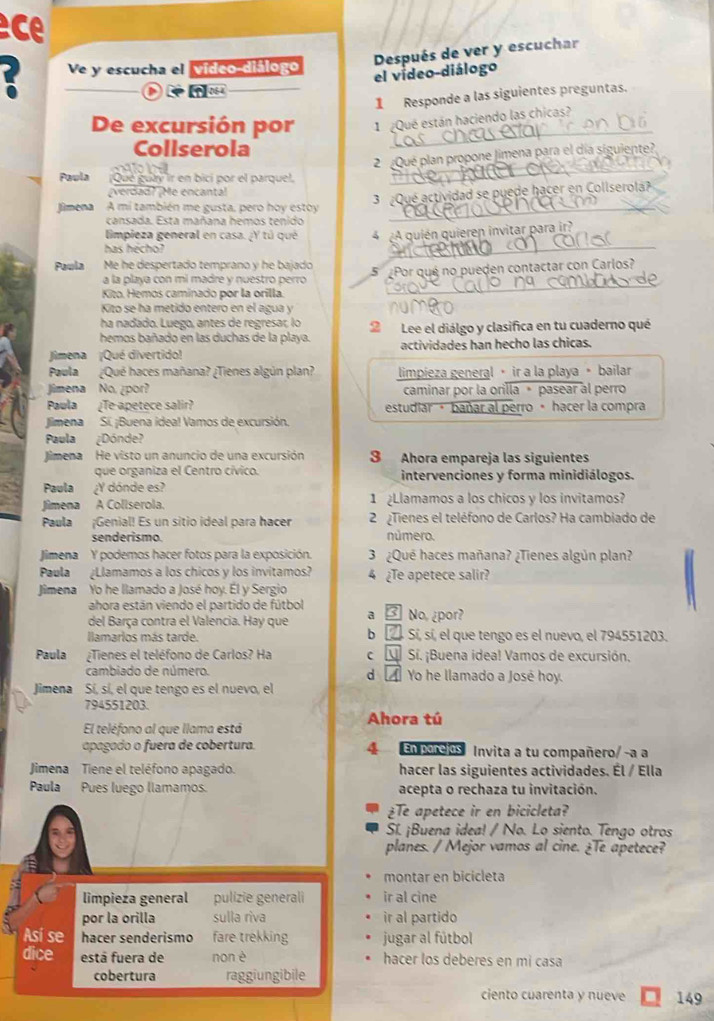 ece
?
Ve y escucha el vídeo-diálogo
064
De excursión por
Collserola
Paula ¡Qué guay ir en bici por el parque!,
¿verdad? ¡Me encanta!
Jimena A mí también me gusta, pero hoy estoy
cansada. Esta mañana hemos tenido
limpieza general en casa. ¿Y tú qué
has hecho?
Paula Me he despertado temprano y he bajado
a la playa con mi madre y nuestro perro
Kito. Hemos caminado por la orilla.
Kito se ha metido entero en el agua y
ha nadado. Luego, antes de regresar, lo
hemos bañado en las duchas de la playa.
Jimena ¡Qué divertido!
Paula ¿Qué haces mañana? ¿Tienes algún plan?
Jimena No, ¿por?
Paula ¿Te apetece salir?
Jimena Sí. ¡Buena idea! Vamos de excursión.
Paula ¿Dónde?
Jimena He visto un anuncio de una excursión
que organiza el Centro cívico.
Paula ¿Y dónde es?
Jimena A Collserola.
Paula ¡Genial! Es un sitio ideal para hacer
senderismo.
Jimena Y podemos hacer fotos para la exposición.
Paula ¿Llamamos a los chicos y los invitamos?
Jimena Yo he llamado a José hoy. Él y Sergio
ahora están viendo el partido de fútbol
del Barça contra el Valencia. Hay que
llamarlos más tarde.
Paula ¿Tienes el teléfono de Carlos? Ha
cambiado de número.
Jimena Sí, sí, el que tengo es el nuevo, el
794551203.
El teléfono al que llama está
apagado o fuera de cobertura.
Jimena Tiene el teléfono apagado.
Paula Pues luego llamamos.
Así se
dice
limpieza general pulizie generali
por la orilla sulla riva
hacer senderismo fare trekking
está fuera de non è
cobertura raggiungibile
Después de ver y escuchar
el vídeo-diálogo
1 Responde a las siguientes preguntas.
1 ¿Qué están haciendo las chicas?
Las chicas estar ir en bici
2 ¿Qué plan propone Jimena para el día siguiente?
3 ¿Qué actividad se puede hacer en Collserola?
4 ¿A quién quieren invitar para ir?
con Carlos
5 ¿Por qué no pueden contactar con Carlos?
Porque Carlo ha cambiado de
numero
2 Lee el diálgo y clasifica en tu cuaderno qué
actividades han hecho las chicas.
limpieza general • ir a la playa • bailar
caminar por la orilla • pasear al perro
estudiar • bañar al perro • hacer la compra
3 Ahora empareja las siguientes
intervenciones y forma minidiálogos.
1 ¿Llamamos a los chicos y los invitamos?
2 ¿Tienes el teléfono de Carlos? Ha cambiado de
número.
3 ¿Qué haces mañana? ¿Tienes algún plan?
4 ¿Te apetece salir?
a 3 No, ¿por?
b 2 Sí, sí, el que tengo es el nuevo, el 794551203.
c 4 Sí. ¡Buena idea! Vamos de excursión.
d 1 Yo he llamado a José hoy.
Ahora tú
4 En parejas Invita a tu compañero/ -a a
hacer las siguientes actividades. Él / Ella
acepta o rechaza tu invitación.
¿Te apetece ir en bicicleta?
Sí. ¡Buena idea! / No. Lo siento. Tengo otros
planes. / Mejor vamos al cine. ¿Te apetece?
• montar en bicicleta
• ir al cine
• ir al partido
• jugar al fútbol
• hacer los deberes en mi casa
ciento cuarenta y nueve 149